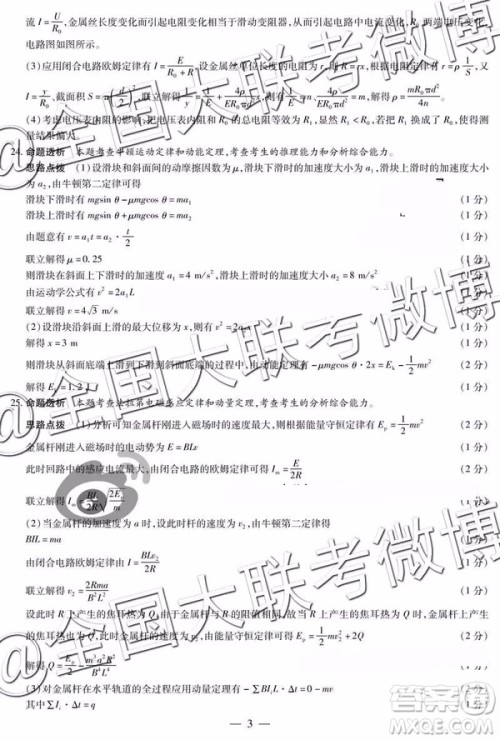 流 I=U/R₀,金属丝长度变化而引起电阻变化相当于滑动变阻器,从而引起电路中电流变化,R₀ 两端电压变化,
电路图如图所示。
(3)应用闭合电路欧姆定律有 I=E/(R₀+R),设金属丝单位长度的电阻为 r,则 R=rx,根据电阻定律有 r=ρ 1/S,又
I=y/R₀,截面积 S=
(4)考虑电压表内阻的影响,把电压表内阻和 R₀ 的总电阻等效为 R₁,显然 R₁<R₀,若把 R₁ 换成了 R₀,使得测
量结果偏大
24. 命题透析 本题考查牛顿运动定律和动能定理,考查考生的推理能力和分析综合能力。
思路点拨 (1)设滑块和斜面间的动摩擦因数为 μ,滑块下滑时的加速度大小为 a₁,滑块上滑时的加速度大小
为 a₂,由牛顿第二定律可得
滑块下滑时有 mgsin θ−μmgcos θ=ma₁ (1分)
滑块上滑时有 mgsin θ+μmgcos θ=ma₂ (1分)
由题意有 v=a₁t=a₂·t/2 (1分)
联立解得 μ=0.25 (1分)
则滑块在斜面上下滑时的加速度 a₁=4 m/s²,滑块上滑时的加速度大小 a₂=8 m/s² (1分)
由运动学公式有 v²=2a₁L (1分)
联立解得 v=4√3 m/s (1分)
(2)设滑块沿斜面上滑的最大位移为 x,则有 v²=2a₂x (1分)
解得 x=3 m (1分)
则滑块从斜面底端上滑到下滑到斜面底端的过程中,由动能定理有 −μmgcos θ·2x=Eₖ−1/2mv² (2分)
解得 Eₖ=1.2 J (1分)
25. 命题透析 本题考查法拉第电磁感应定律和动量定理,考查考生的分析综合能力。
思路点拨 (1)分析可知金属杆刚进入磁场时的速度最大,则根据能量守恒定律有 Eₚ=1/2mv² (2分)
金属杆刚进入磁场时的电动势为 E=BLv (1分)
此时回路中的感应电流最大,由闭合电路的欧姆定律可得 Iₘ=E/2R (1分)
联立解得 Iₘ=BL/2R √(2Eₚ/m) (1分)
(2)当金属杆的加速度为 a 时,设此时杆的速度为 v₂,由牛顿第二定律得
BIL=ma (1分)
由闭合电路的欧姆定律有 I=BLv₂/2R (1分)
联立解得 v₂=2Rma/B²L² (1分)
设此时 R 上产生的焦耳热为 Q,由于金属杆与 R 的阻值相同,而当 R 上产生的焦耳热为 Q 时,金属杆上产生
的焦耳热也为 Q,此时金属杆的速度为 v₂,由能量守恒定律可得 Eₚ=1/2mv₂²+2Q (2分)
解得 Q=Eₚ/2−m³a²R²/B⁴L⁴ (1分)
(3)对金属杆在水平轨道的全过程应用动量定理有 −ΣBIᵢL·Δt=0−mv (2分)
其中ΣIᵢ·Δt=q (1分)
— 3 —
@全国大联考微博
@全国大联考微博
@全国大联考微博